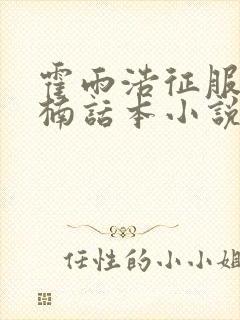 霍雨浩征服
楠話本小說
任性的小小姐